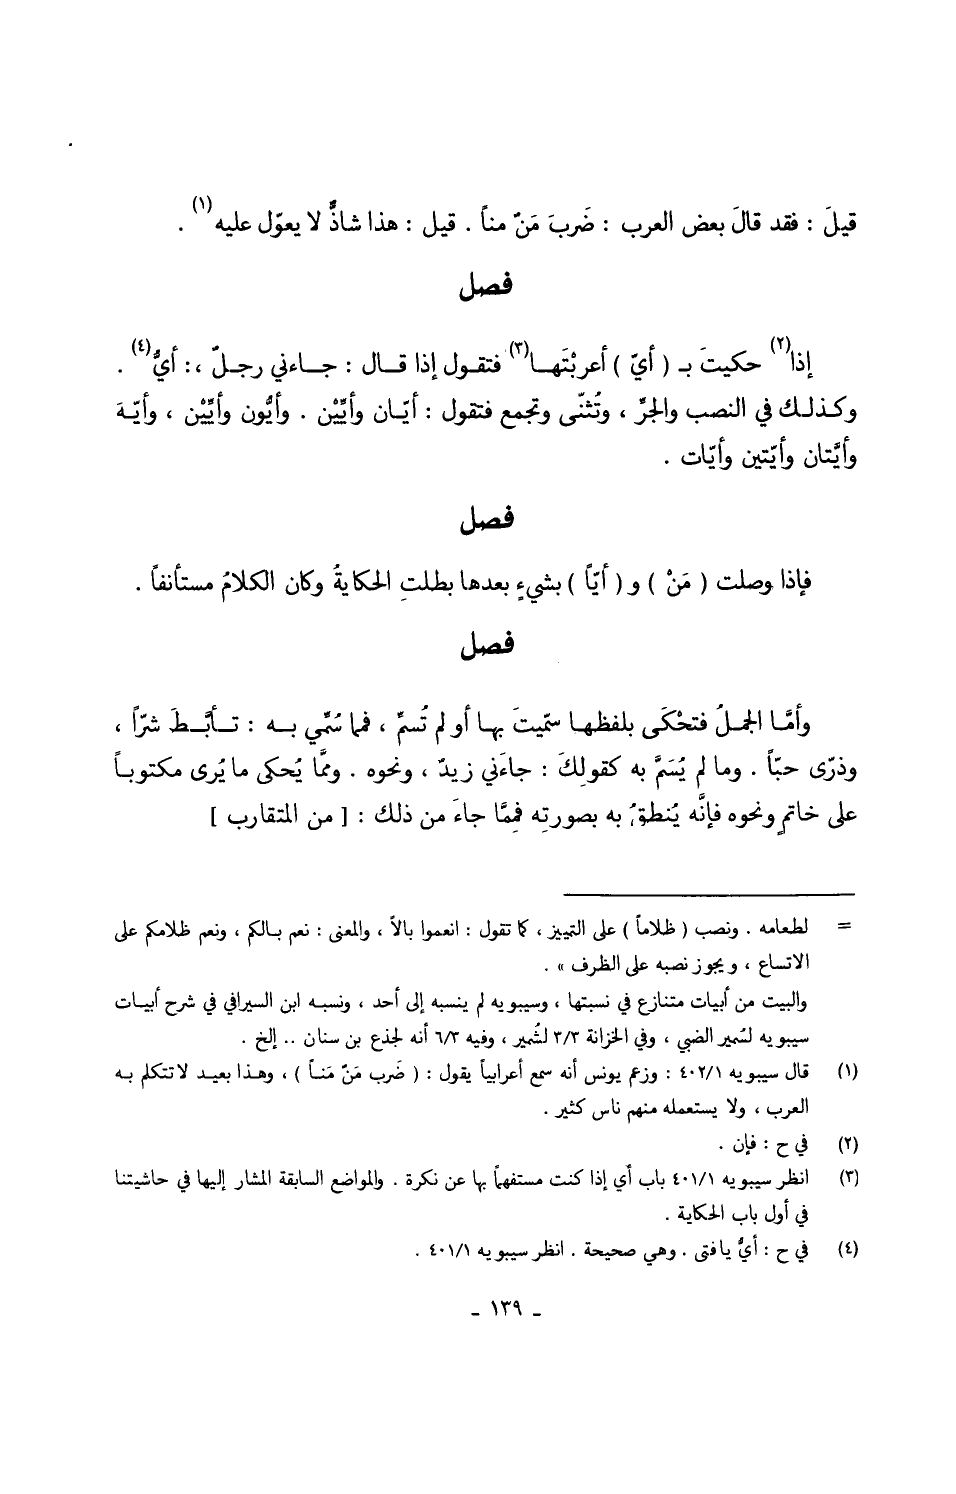 قيلَ : فقد قالَ بعض العرب : ضَربَ مَنٌ مناً . قيل : هذا شاذٌّ لا يعوّل عليه(١) .
فصل
إذا(٢) حكيتَ بـ ( أيّ ) أعربْتَهـا(٣) فتقـول إذا قـال : جـاءني رجـلٌ ،: أيٌّ(٤) .
وكـذلـك في النصب والجرِّ ، وتُثنّى وتجمع فتقول : أيّـان وأيَّيْن . وأيُّون وأيِّيْن ، وأيّـةَ
وأيَّتان وأيّتين وأيّات .
فصل
فإذا وصلت ( مَنْ ) و ( أيّاً ) بشيءٍ بعدها بطلتِ الحكايةُ وكان الكلامُ مستأنفاً .
فصل
وأمَّا الجمـلُ فتحْكَى بلفظهـا سمّيتَ بهـا أو لم تُسمِّ ، فما سُمِّي بـه : تـأبَّـطَ شرّاً ،
وذرّى حبّاً . وما لم يُسَمَّ به كقولِكَ : جاءَني زيدٌ ، ونحوه . وممَّا يُحكى ما يُرى مكتوبـاً
على خاتمٍ ونحوه فإنَّه يُنطقُ به بصورتِه فمِمَّا جاءَ من ذلك : [ من المتقارب ]
= لطعامه . ونصب ( ظلاماً ) على التمييز ، كما تقول : انعموا بالاً ، والمعنى : نعم بـالكم ، ونعم ظلامكم على
الاتساع ، ويجوز نصبه على الظرف » .
والبيت من أبيات متنازع في نسبتها ، وسيبويه لم ينسبه إلى أحد ، ونسبـه ابن السيرافي في شرح أبيـات
سيبويه لسُمير الضبي ، وفي الخزانة ٣/٣ لشُمير ، وفيه ٦/٣ أنه لجذع بن سنان .. إلخ .
(١) قال سيبويه ٤٠٢/١ : وزعم يونس أنه سمع أعرابياً يقول : ( ضَرب مَنٌ مَنـاً ) ، وهـذا بعيـد لا تتكلم بـه
العرب ، ولا يستعمله منهم ناس كثير .
(٢) في ح : فإن .
(٣) انظر سيبويه ٤٠١/١ باب أي إذا كنت مستفهماً بها عن نكرة . والمواضع السابقة المشار إليها في حاشيتنا
في أول باب الحكاية .
(٤) في ح : أيٌّ يا فتى . وهي صحيحة . انظر سيبويه ٤٠١/١ .
ـ ١٣٩ ـ